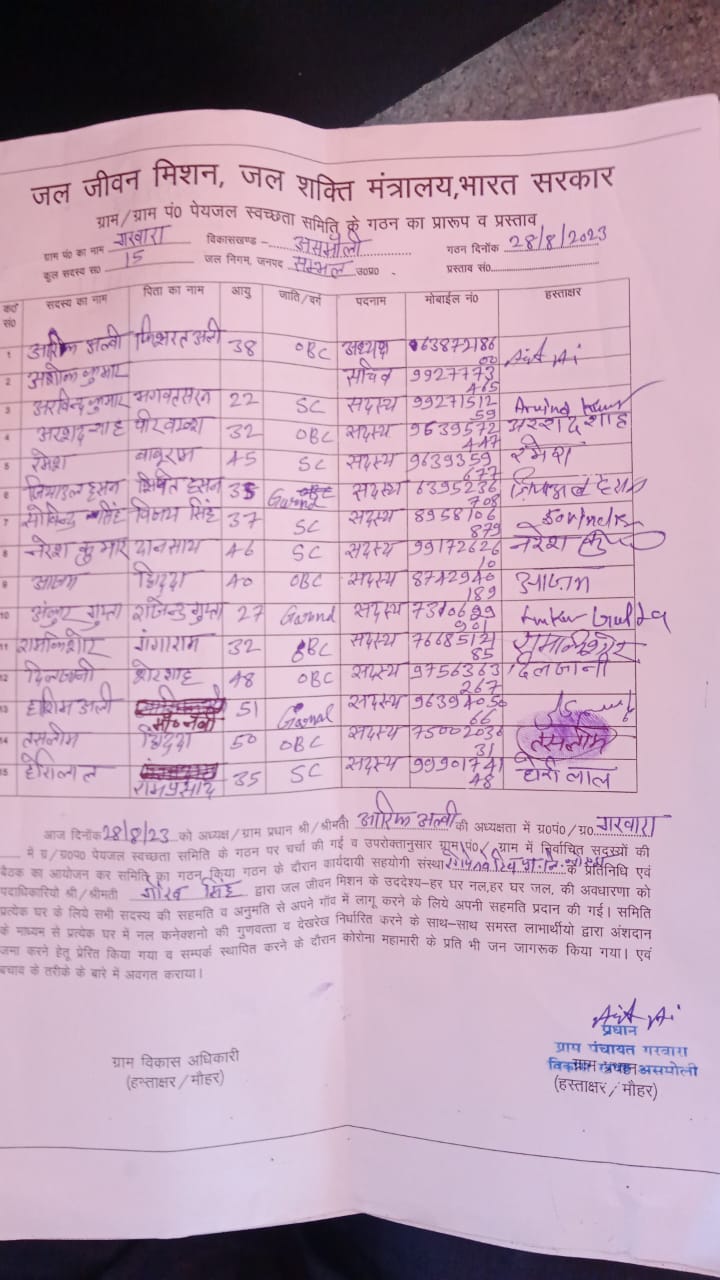 जल जीवन मिशन, जल शक्ति मंत्रालय,भारत सरकार
ग्राम/ग्राम पं0 पेयजल स्वच्छता समिति के गठन का प्रारूप व प्रस्ताव
ग्राम पं0 का नाम गरवारा विकासखण्ड - असमोली गठन दिनाँक 28/8/2023
कुल सदस्य स0 15 जल निगम, जनपद सम्भल उ0प्र0 प्रस्ताव सं0
सं0 सदस्य का नाम पिता का नाम आयु जाति/वर्ग पदनाम मोबाईल नं0 हस्ताक्षर
1 आरिफ अल्वी अली 38 OBC अध्यक्ष
2 अशोक कुमार सचिव 9927773465
3 अरविन्द कुमार भगवतसरन 22 SC सदस्य 9927151259 Arvind Kumar
4 अरशद शाह पीरबख्श 32 OBC सदस्य 9639572447 अरशद शाह
5 रमेश बाबूराम 45 SC सदस्य 9639359677 रमेश
6 हसन हसन 35 सदस्य 6395236708
7 सिंह विजय सिंह 37 SC सदस्य 8958106879
8 नरेश कुमार दानसहाय 46 SC सदस्य 9917262610 नरेश
9 आजम छिद्दा 40 OBC सदस्य 8742940189 आजम
10 अंकुर गुप्ता राजेन्द्र गुप्ता 27 सदस्य 7310699901 Ankur Gupta
11 रामकिशोर गंगाराम 32 OBC सदस्य 7668512185 रामकिशोर
12 दिलजानी शेरशाह 48 OBC सदस्य 9756363267 दिलजानी
13 हाशिम अली मौ0 नवी 51 सदस्य 9639405066
14 तसलीम छिद्दा 50 OBC सदस्य 7500203631 तसलीम
15 हीरालाल रामप्रसाद 35 SC सदस्य 9990174148 हीरा लाल
आज दिनाँक 28/8/23 को अध्यक्ष/ग्राम प्रधान श्री/श्रीमती आरिफ अल्वी की अध्यक्षता में ग्र0पं0/ग्र0 गरवारा
में ग्र/ग्र0प0 पेयजल स्वच्छता समिति के गठन पर चर्चा की गई व उपरोक्तानुसार ग्राम पं0/ग्राम में निर्वाचित सदस्यों की
बैठक का आयोजन कर समिति का गठन किया गया गठन के दौरान कार्यदायी सहयोगी संस्था के प्रतिनिधि एवं
पदाधिकारियो श्री/श्रीमती गौरव सिंह द्वारा जल जीवन मिशन के उददेश्य-हर घर नल,हर घर जल, की अवधारणा को
प्रत्येक घर के लिये सभी सदस्य की सहमति व अनुमति से अपने गाँव में लागू करने के लिये अपनी सहमति प्रदान की गई। समिति
के माध्यम से प्रत्येक घर में नल कनेक्शनो की गुणवत्ता व देखरेख निर्धारित करने के साथ-साथ समस्त लाभार्थीयो द्वारा अंशदान
जमा करने हेतु प्रेरित किया गया व सम्पर्क स्थापित करने के दौरान कोरोना महामारी के प्रति भी जन जागरूक किया गया। एवं
बचाव के तरीके के बारे में अवगत कराया।
प्रधान
ग्राम पंचायत गरवारा
ग्राम विकास अधिकारी
(हस्ताक्षर/मौहर)
(हस्ताक्षर/मौहर)